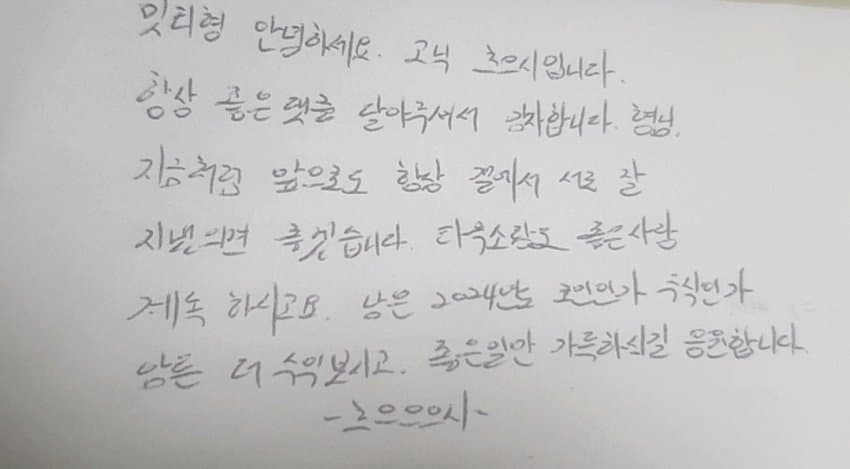 밋티형 안녕하세요. 고닉 흐으시입니다.
항상 좋은 댓글 달아주셔서 감사합니다. 형님.
지금처럼 앞으로도 항상 곁에서 서로 잘
지냈으면 좋겠습니다. 좋은사람
계속 하시고요. 남은 2024년도 코인인가 주식인가
암튼 더 수익보시고. 좋은일만 가득하시길 응원합니다.